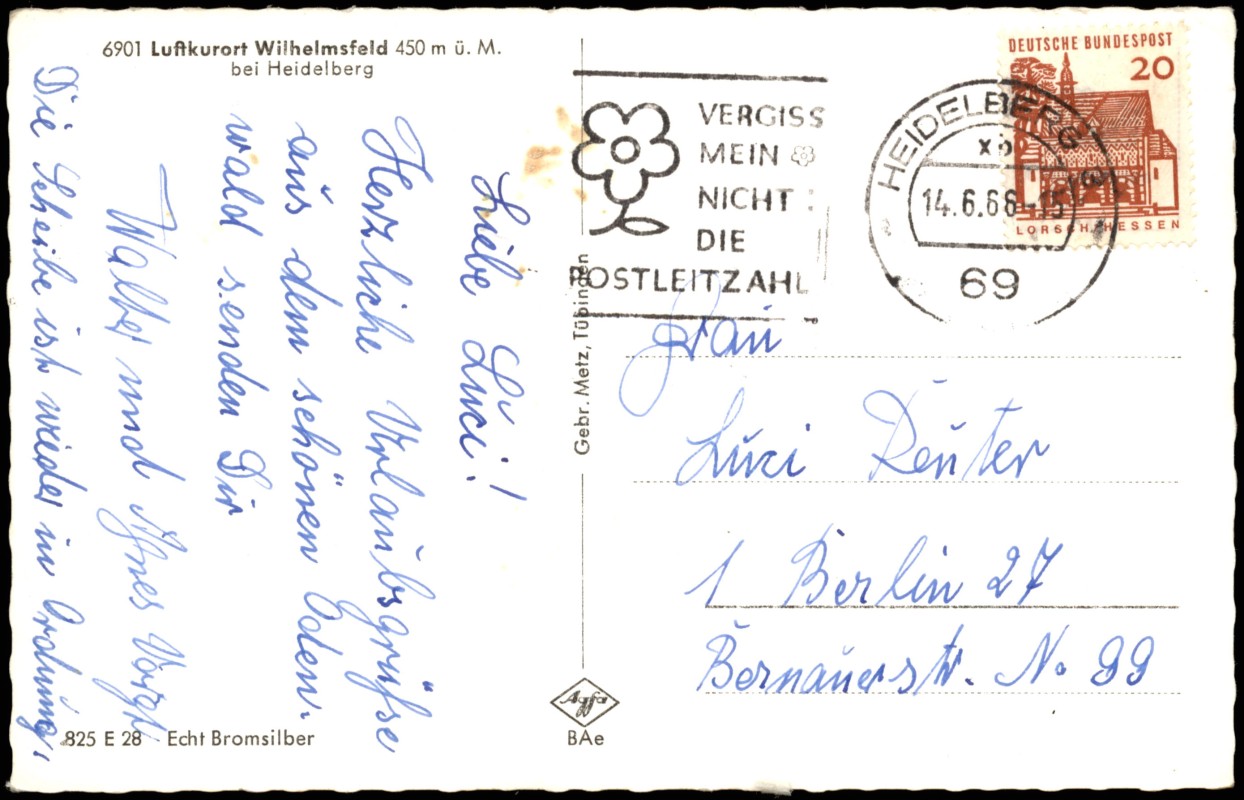 6901 Luftkurort Wilhelmsfeld 450 m ü. M.
bei Heidelberg
Liebe Luci!
Herzliche Urlaubsgrüsse
aus dem schönen Oden-
wald senden Dir
Walter und Agnes
Die Scheibe ist wieder in Ordnung.
825 E 28 Echt Bromsilber
Gebr. Metz, Tübingen
Agfa
BAe
VERGISS
MEIN
NICHT
DIE
POSTLEITZAHL
HEIDELBERG
14.6.66-15
69
DEUTSCHE BUNDESPOST
20
LORSCH/HESSEN
Frau
Luci Reuter
1 Berlin 27
Bernauerstr. No 99